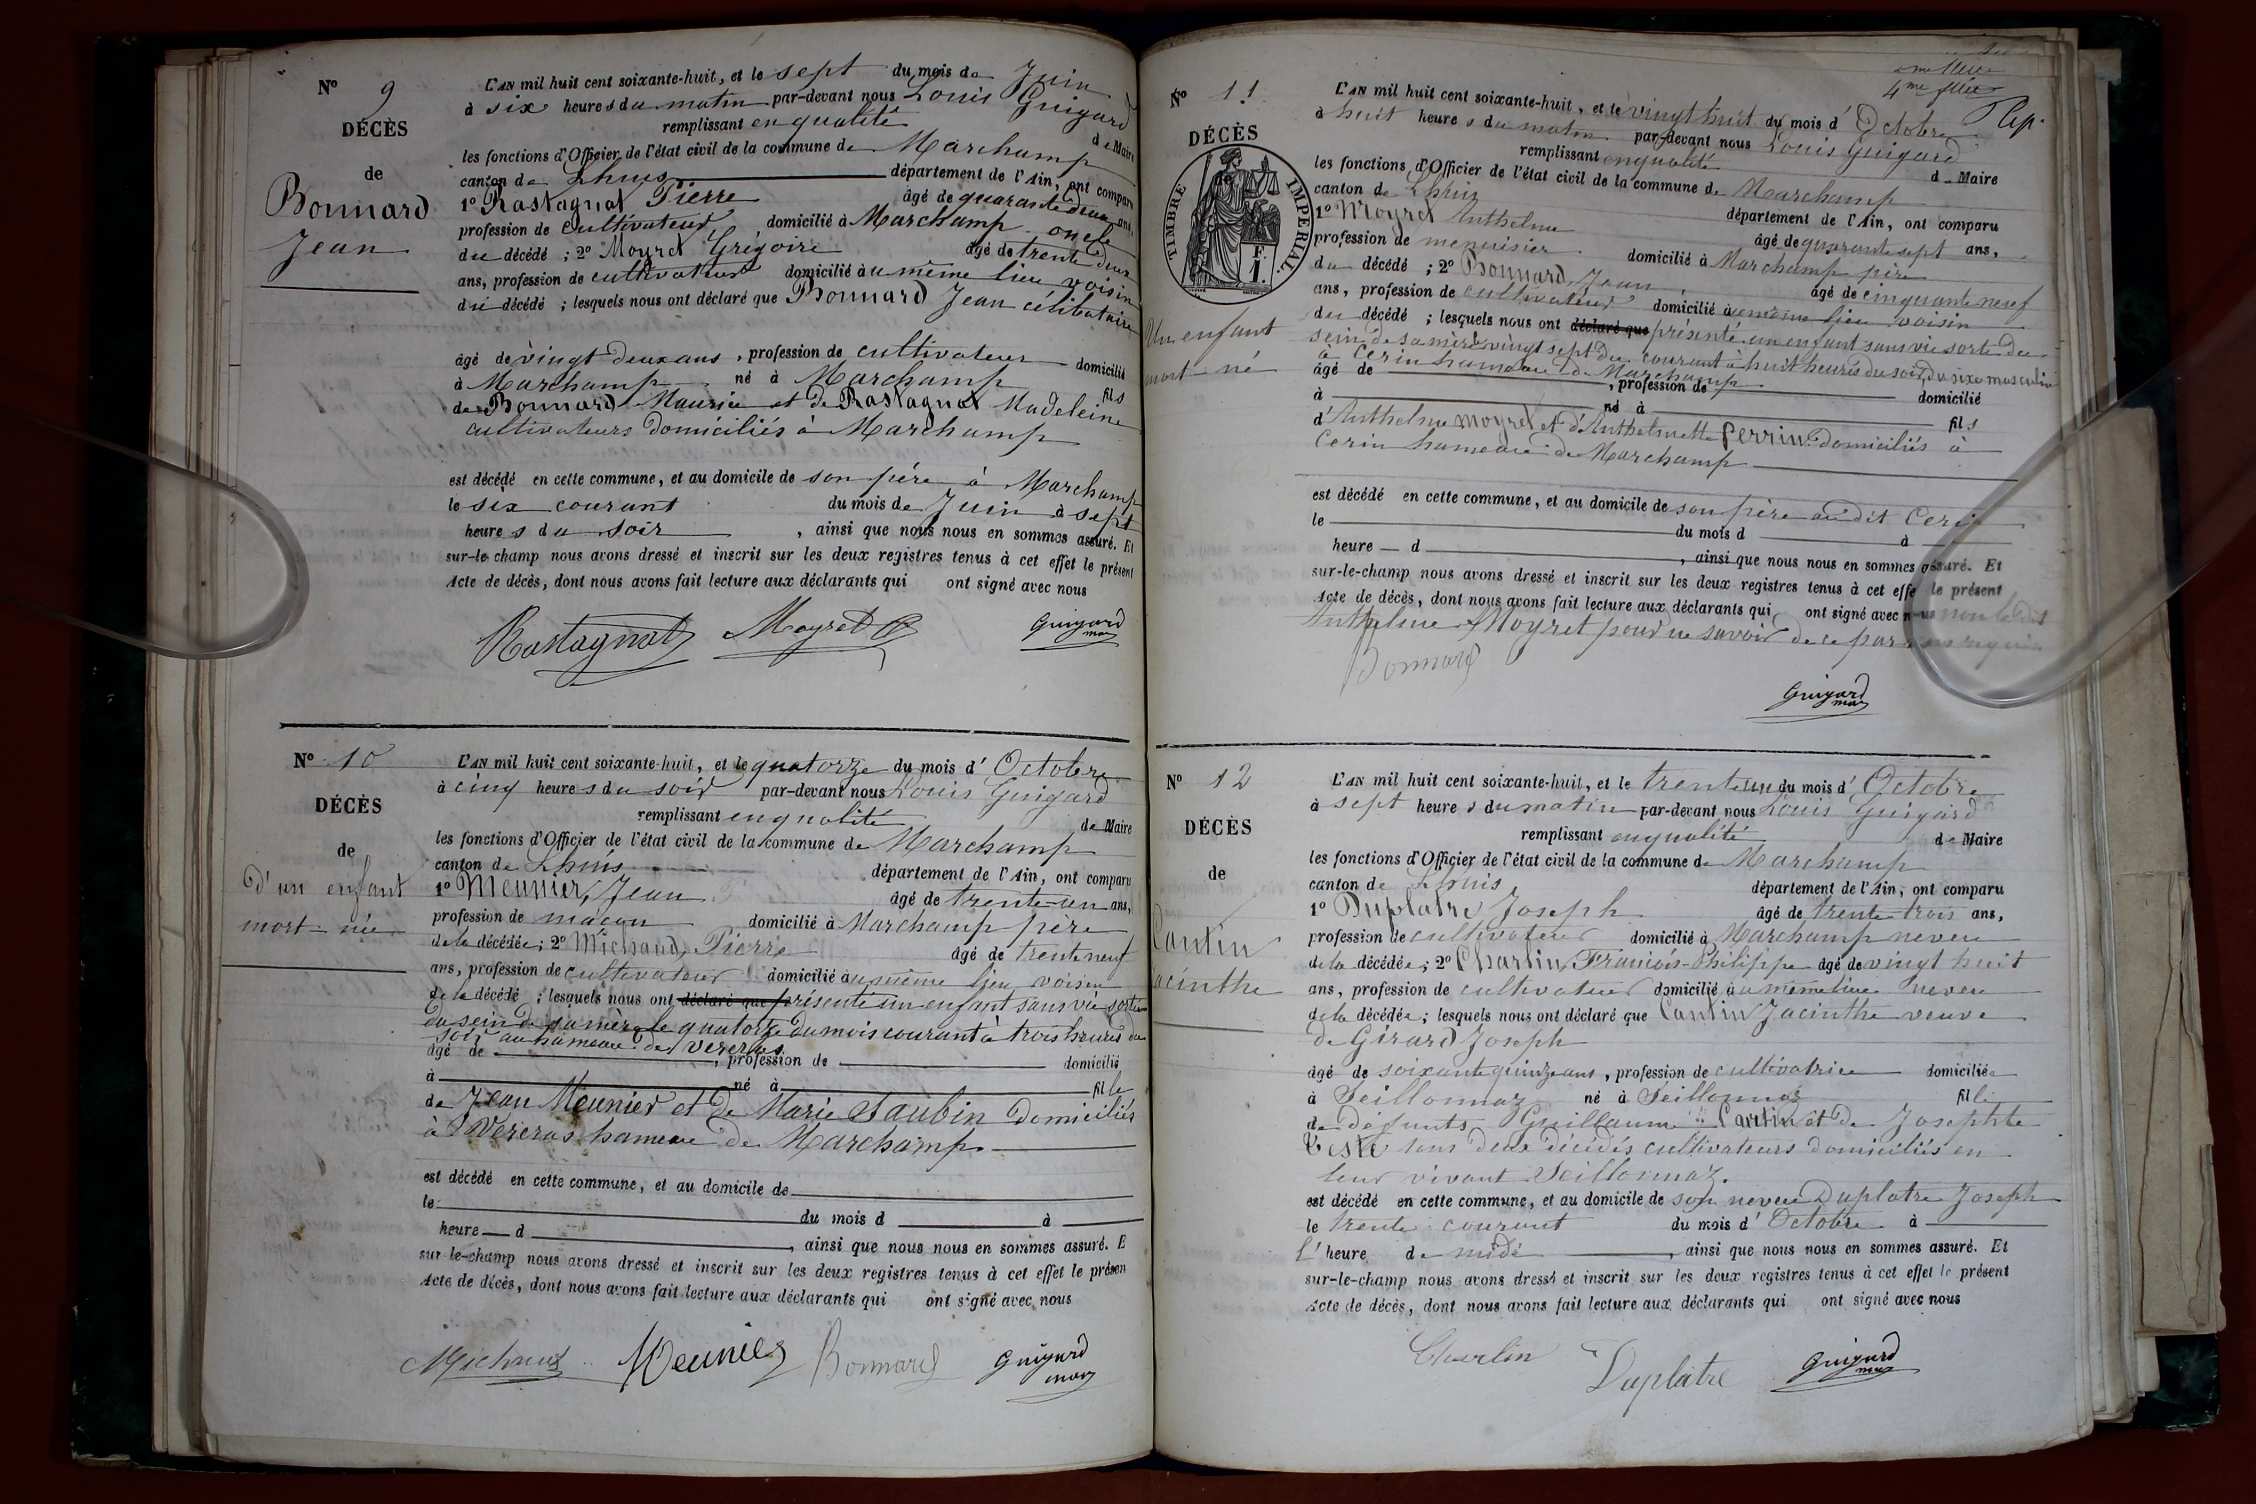 N° 9
DÉCÈS
de
Bonnard
Jean
L'AN mil huit cent soixante-huit, et le sept du mois de Juin
à six heures du matin par-devant nous Louis Guigard
remplissant en qualité de Maire
les fonctions d'Officier de l'état civil de la commune de Marchamp
canton de Lhuis département de l'Ain, ont comparu
1° Rastagnat Pierre âgé de quarante deux ans,
profession de cultivateur domicilié à Marchamp oncle
du décédé ; 2° Moyret Grégoire âgé de trente deux
ans, profession de cultivateur domicilié au même lieu voisin
du décédé ; lesquels nous ont déclaré que Bonnard Jean célibataire
âgé de vingt deux ans, profession de cultivateur domicilié
à Marchamp né à Marchamp fils
de Bonnard Maurice et de Rastagnat Madeleine
cultivateurs domiciliés à Marchamp
est décédé en cette commune, et au domicile de son père à Marchamp
le six courant du mois de Juin à sept
heures du soir, ainsi que nous nous en sommes assuré. Et
sur-le-champ nous avons dressé et inscrit sur les deux registres tenus à cet effet le présent
Acte de décès, dont nous avons fait lecture aux déclarants qui ont signé avec nous
Rastagnat Moyret G Guigard
mar
N° 10
DÉCÈS
de
D'un enfant
mort-née
L'AN mil huit cent soixante-huit, et le quatorze du mois d'Octobre
à cinq heures du soir par-devant nous Louis Guigard
remplissant en qualité de Maire
les fonctions d'Officier de l'état civil de la commune de Marchamp
canton de Lhuis département de l'Ain, ont comparu
1° Meunier, Jean âgé de trente-un ans,
profession de maçon domicilié à Marchamp père
de la décédée ; 2° Michaud, Pierre âgé de trente neuf
ans, profession de cultivateur domicilié au même lieu voisin
de la décédé ; lesquels nous ont déclaré que présenté un enfant sans vie sortie
du sein de sa mère le quatorze du mois courant à trois heures du
soir au hameau de Vereras
âgé de , profession de domicilié
à né à fille
de Jean Meunier et de Marie Staubin domiciliés
à Vereras hameau de Marchamp
est décédé en cette commune, et au domicile de
le du mois d à
heure d , ainsi que nous nous en sommes assuré. E
sur-le-champ nous avons dressé et inscrit sur les deux registres tenus à cet effet le présen
Acte de décès, dont nous avons fait lecture aux déclarants qui ont signé avec nous
Michaud Meunier Bonnard Guigard
mar
4me
Rep.
N° 11
DÉCÈS
de
TIMBRE IMPÉRIAL
Un enfant
mort-né
L'AN mil huit cent soixante-huit, et le vingt huit du mois d'Octobre
à huit heures du matin par-devant nous Louis Guigard
remplissant en qualité de Maire
les fonctions d'Officier de l'état civil de la commune de Marchamp
canton de Lhuis département de l'Ain, ont comparu
1° Moyret Anthelme âgé de quarante sept ans,
profession de menuisier domicilié à Marchamp père
du décédé ; 2° Bonnard, Jean, âgé de cinquante neuf
ans, profession de cultivateur domicilié au même lieu voisin
du décédé ; lesquels nous ont déclaré que présenté un enfant sans vie sorte du
sein de sa mère le vingt sept du courant à huit heures du soir, du sexe masculin
à Cerin hameau de Marchamp
âgé de , profession de domicilié
à né à fils
d'Anthelme Moyret et d'Anthelmette Perrin domiciliés à
Cerin hameau de Marchamp
est décédé en cette commune, et au domicile de son père au dit Cerin
le du mois d à
heure d , ainsi que nous nous en sommes assuré. Et
sur-le-champ nous avons dressé et inscrit sur les deux registres tenus à cet effe le présent
Acte de décès, dont nous avons fait lecture aux déclarants qui ont signé avec nous non ledit
Anthelme Moyret pour ne savoir de ce par nous requis
Bonnard
Guigard
mar
N° 12
DÉCÈS
de
Cantin
Jacinthe
L'AN mil huit cent soixante-huit, et le trente un du mois d'Octobre
à sept heures du matin par-devant nous Louis Guigard
remplissant en qualité de Maire
les fonctions d'Officier de l'état civil de la commune de Marchamp
canton de Lhuis département de l'Ain, ont comparu
1° Duplatre Joseph âgé de trente-trois ans,
profession de cultivateur domicilié à Marchamp neveu
de la décédée ; 2° Charlin, François-Philippe âgé de vingt huit
ans, profession de cultivateur domicilié au même lieu neveu
de la décédée ; lesquels nous ont déclaré que Cantin Jacinthe veuve
de Girard Joseph
âgé de soixante quinze ans, profession de cultivatrice domiciliée
à Seillonnaz né à Seillonnaz fille
de défunts Guillaume Cantin et de Josephte
Teste tous deux décédés cultivateurs domiciliés en
leur vivant Seillonnaz.
est décédé en cette commune, et au domicile de son neveu Duplatre Joseph
le trente courant du mois d'Octobre à
l'heure de midi, ainsi que nous nous en sommes assuré. Et
sur-le-champ nous avons dressé et inscrit sur les deux registres tenus à cet effet le présent
Acte de décès, dont nous avons fait lecture aux déclarants qui ont signé avec nous
Charlin Duplatre Guigard
mar